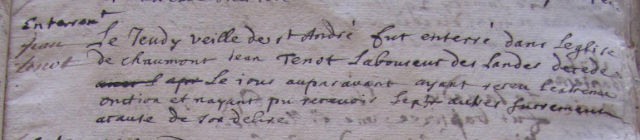 Enterrem^t
jean
tenot
Le Jeudy veille de st André fut enterré dans leglise
de chaumont Jean Tenot Laboureur des Landes decedé
le jour auparavant ayant receu lextreme
onction et nayant pu recevoir les autres sacremens
acause de son delire